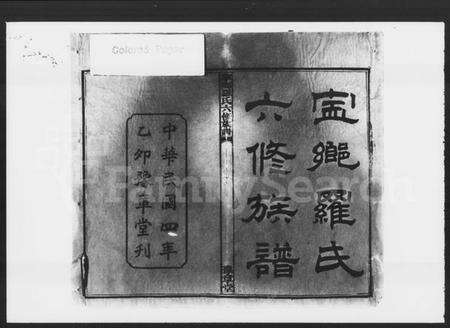 Colored Paper
寍鄉羅氏
六修族譜
中華民國四年
乙卯豫章堂刊
FamilySearch